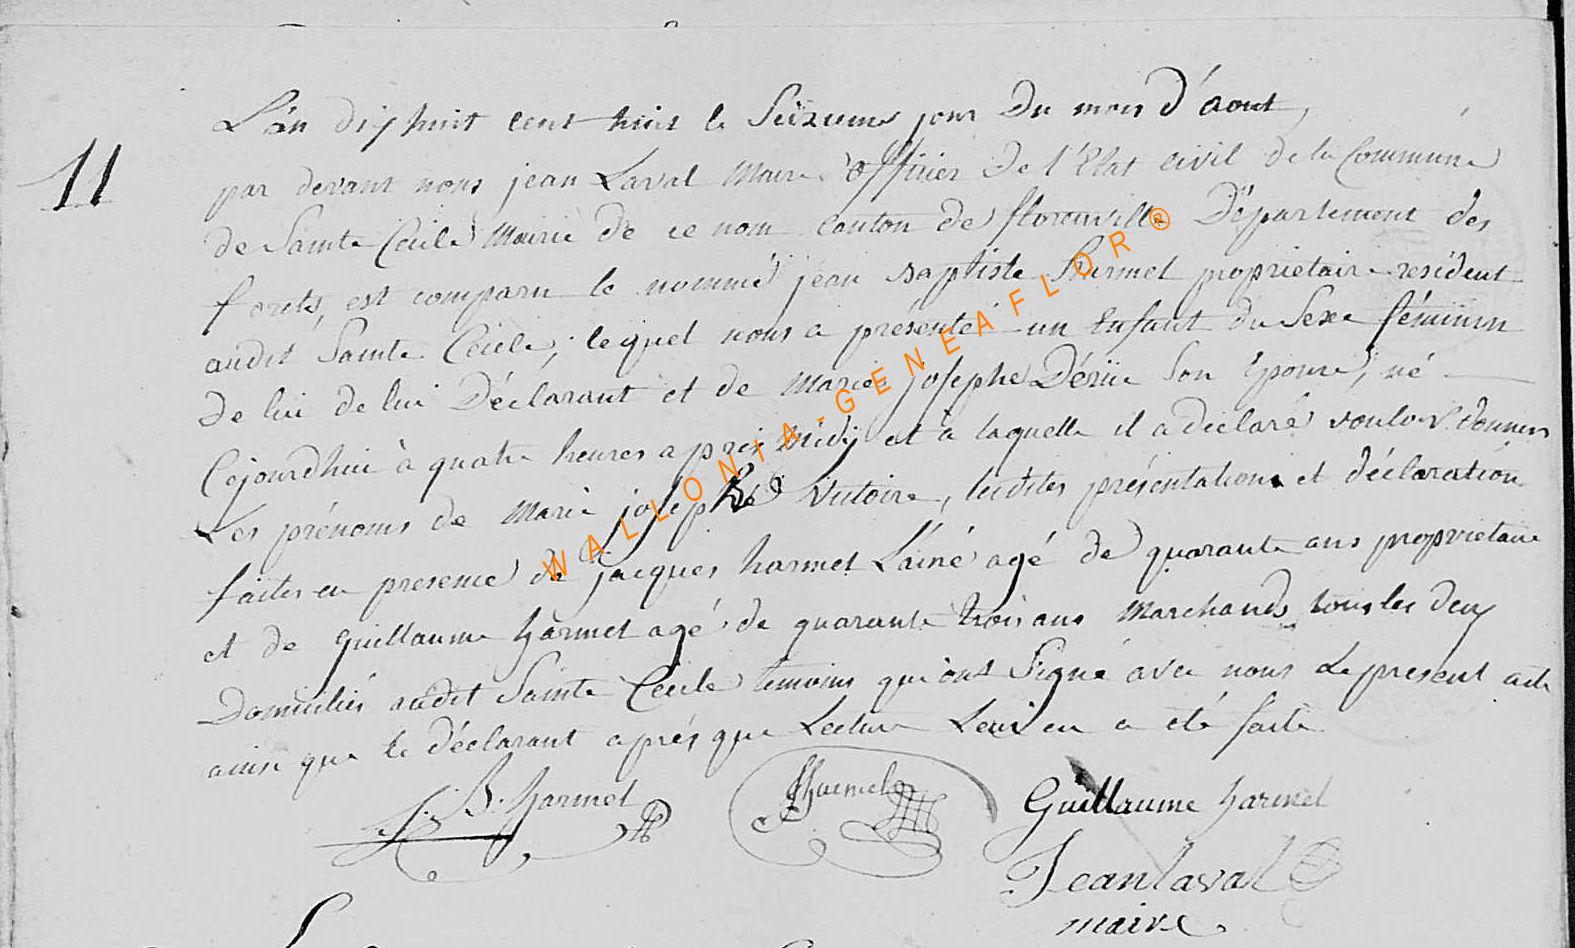 11
L'an dix huit cent huit le Seizieme jour du mois d'aout,
par devant nous jean Laval Maire officier de l'Etat civil de la Commune
de Sainte Cécile Mairie de ce nom canton de florenville Département des
forets, est comparu le nommé jean baptiste harmel proprietaire resident
audit Sainte Cécile, lequel nous a présenté un Enfant du Sexe féminin
de lui de lui Déclarant et de Marie josephe Son Epouse, né
Cejourdhui à quatre heures apres Midy et à laquelle il a déclaré vouloir donner
Les prénoms de Marie josephe Victoire, lesdites présentation et déclaration
faites en presence de jacques harmel L'ainé agé de quarante ans proprietaire
et de Guillaume harmel agé de quarante trois ans Marchands tous les deux
Domiciliés audit Sainte Cecile temoins qui ont Signé avec nous Le present acte
ainsi que le déclarant après que Lecture Leur en a été faite
J. B. harmel
JHarmel
Guillaume harmel
Jean laval
maire
WALLONIA-GENEAFLOR®